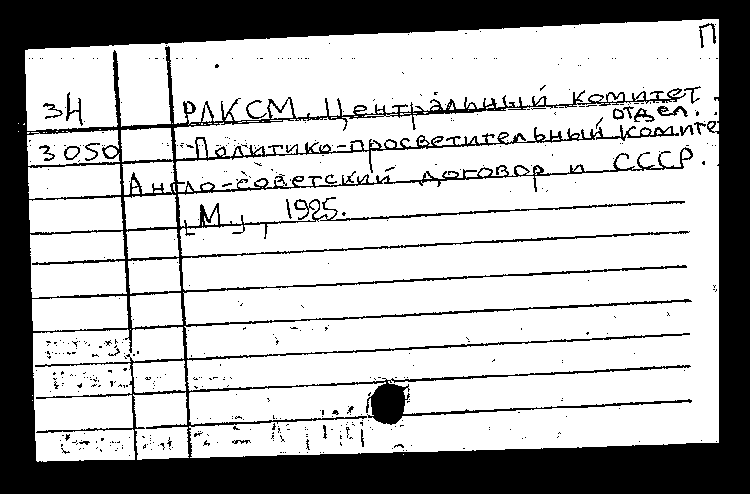 П
3Н РЛКСМ. Центральный комитет.
отдел.
3050 Политико-просветительный комите
Англо-советский договор и СССР.
[М.], 1925.